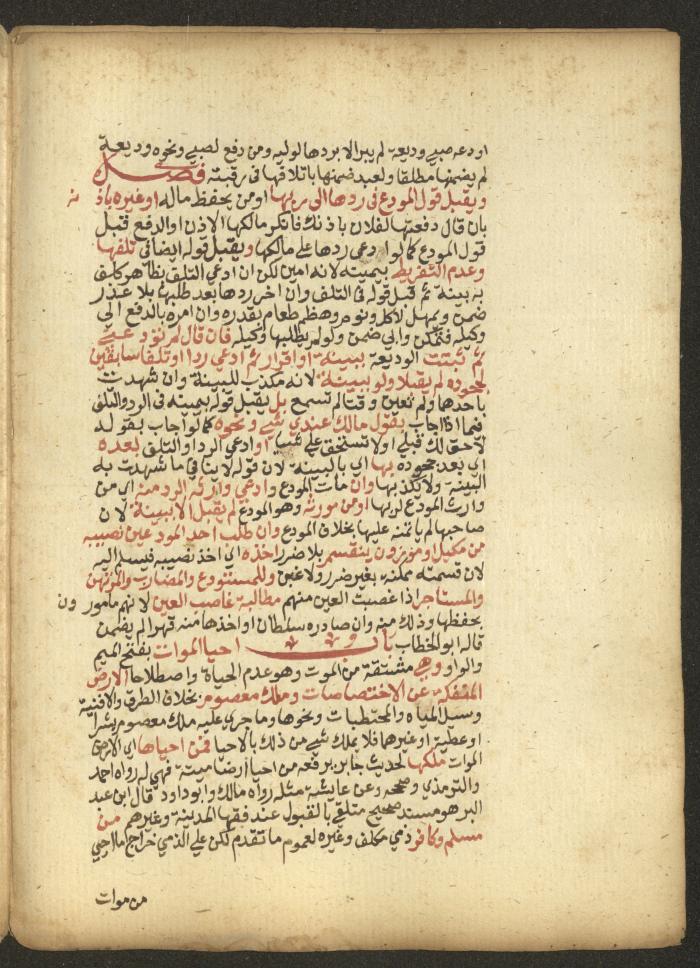 اودعه صبي وديعة لم يبرا الا بردها لوليه ومن دفع لصبي ونحوه وديعة
لم يضمنها مطلقا ولعبد ضمنها باتلافها في رقبته فصل
ويقبل قول المودع في ردها الى ربها او من يحفظ ماله او غيره باذنه
بان قال دفعتها لفلان باذنك فانكر مالكها الاذن او الدفع قبل
قول المودع كما لو ادعى ردها على مالكها ويقبل قوله ايضا في تلفها
وعدم التفريط بيمينه لانه امين لكن ان ادعى التلف بظاهر كلف
به ببينة ثم قبل قوله في التلف وان اخر ردها بعد طلبها بلا عذر
ضمن ويمهل لاكل ونوم وهضم طعام بقدره وان امره بالدفع الى
وكيله فتمكن وابى ضمن ولو لم يطلبها وكيله فان قال لم تودعني
ثم ثبتت الوديعة ببينة او اقرار ثم ادعى ردا او تلفا سابقين
لجحوده لم يقبلا ولو ببينة لانه مكذب للبينة وان شهدت
باحدهما ولم تعين وقتا لم تسمع بل يقبل قوله بيمينه في الرد والتلف
فيما اذا اجاب بقوله مالك عندي شي ونحوه كما لو اجاب بقوله
لا حق لك قبلي او لا تستحق علي شيا او ادعى الرد او التلف بعده
اي بعد جحوده بها اي بالبينة لان قوله لا ينافي ما شهدت به
البينة ولا يكذبها وان مات المودع وادعى وارثه الرد منه اي من
وارث المودع لربها او من مورثه وهو المودع لم يقبل الا ببينة لان
صاحبها لم ياتمنه عليها بخلاف المودع وان طلب احد المودعين نصيبه
من مكيل او موزون ينقسم بلا ضرر اخذه اي اخذ نصيبه فيسلم اليه
لان قسمته ممكنة بغير ضرر ولا غبن وللمستودع والمضارب والمرتهن
والمستاجر اذا غصبت العين منهم مطالبة غاصب العين لانهم مامورون
بحفظها وذلك منه وان صادره سلطان او اخذها منه قهرا لم يضمن
قاله ابو الخطاب باب احيا الموات بفتح الميم
والواو وهي مشتقة من الموت وهو عدم الحياة واصطلاحا الارض
المنفكة عن الاختصاصات وملك معصوم بخلاف الطرق والافنية
وسيل المياه والمحتطبات ونحوها وما جرى عليه ملك معصوم بشرا
او عطية او غيرهما فلا يملك شي من ذلك بالاحيا فمن احياها اي الارض
الموات ملكها لحديث جابر يرفعه من احيا ارضا ميتة فهي له رواه احمد
والترمذي وصححه وعن عايشة مثله رواه مالك وابو داود قال ابن عبد
البر هو مسند صحيح متلقى بالقبول عند فقها المدينة وغيرهم من
مسلم وكافر ذمي مكلف وغيره لعموم ما تقدم لكن على الذمي خراج ما احيى
من موات